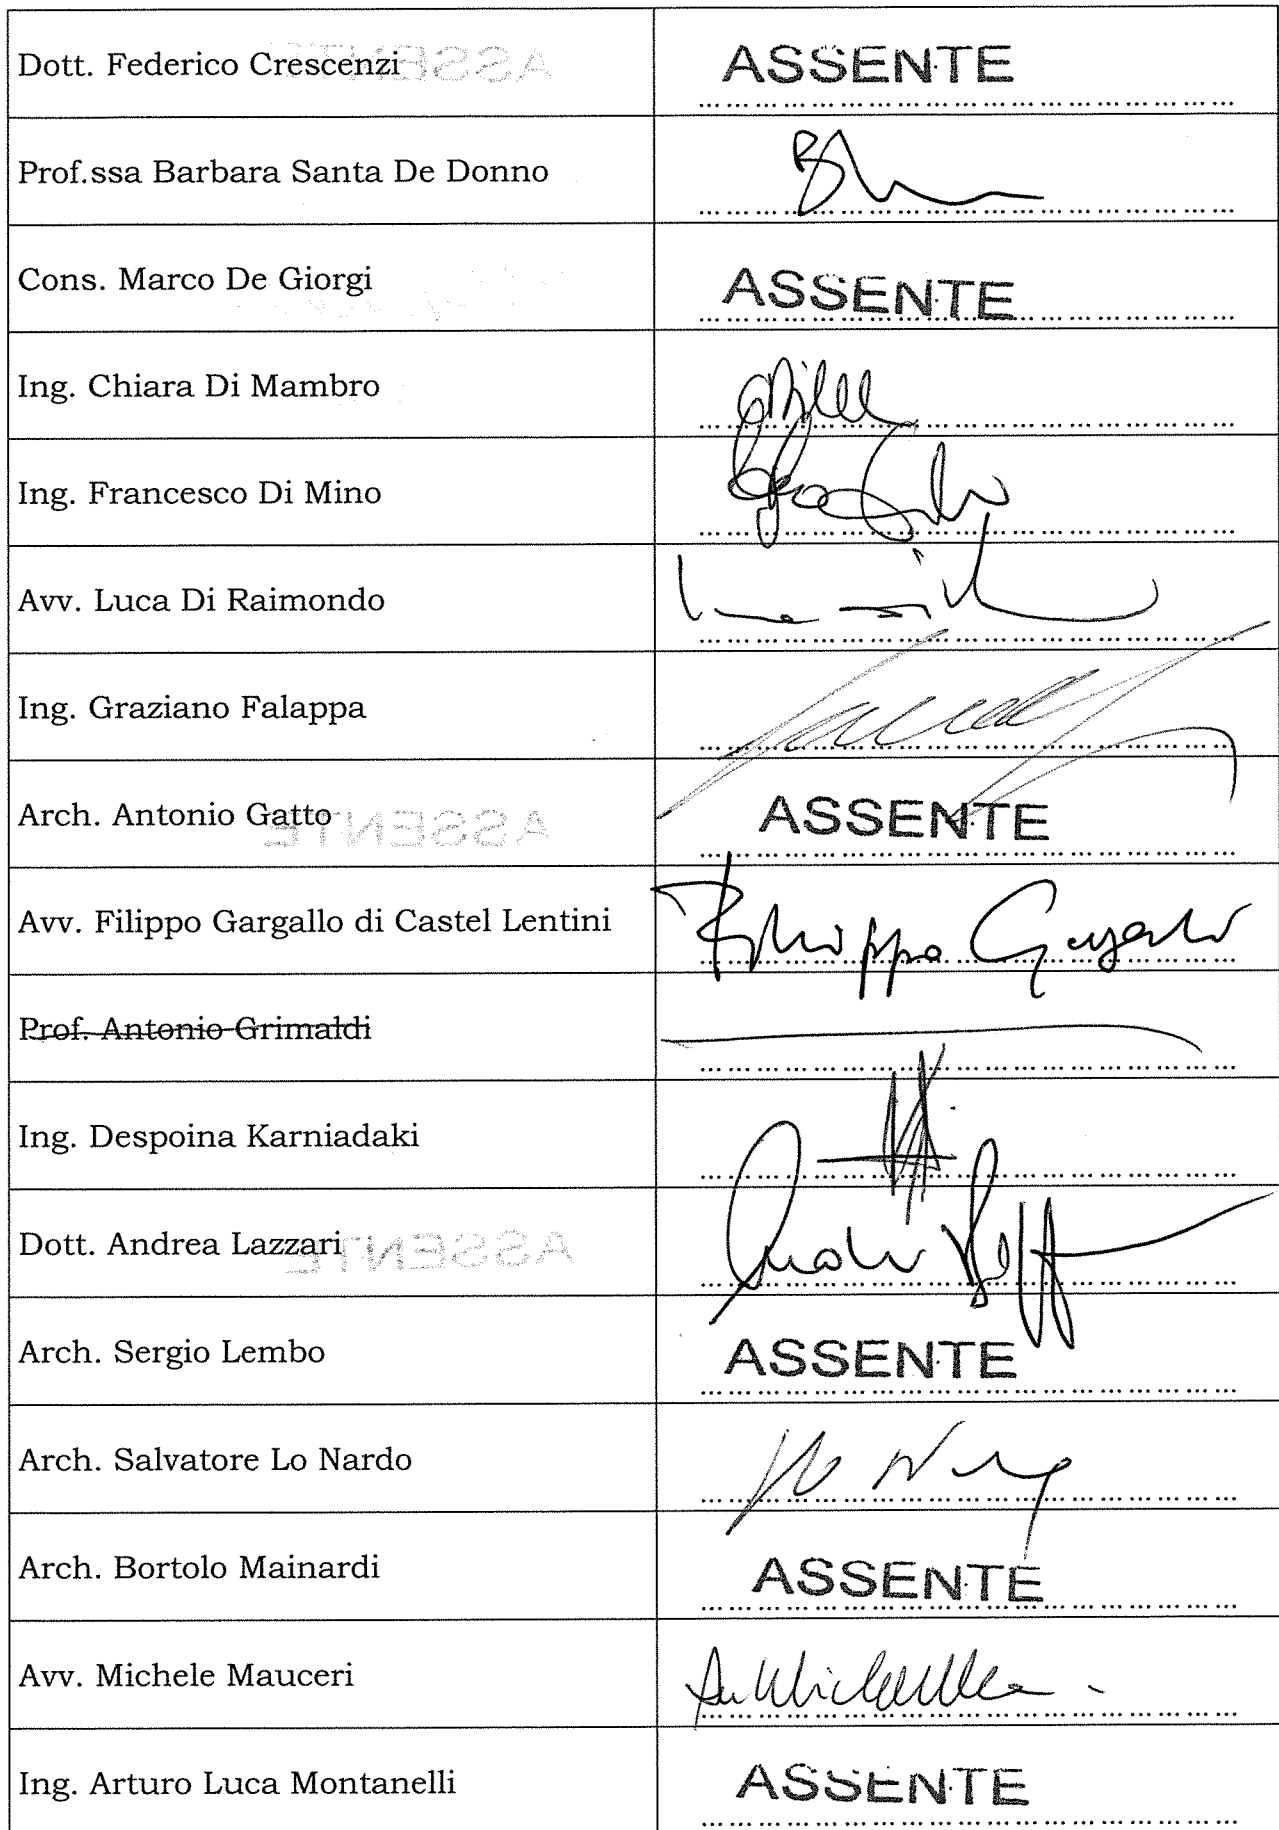 Dott. Federico Crescenzi ASSENTE
Prof.ssa Barbara Santa De Donno
Cons. Marco De Giorgi ASSENTE
Ing. Chiara Di Mambro
Ing. Francesco Di Mino
Avv. Luca Di Raimondo
Ing. Graziano Falappa
Arch. Antonio Gatto ASSENTE
Avv. Filippo Gargallo di Castel Lentini Filippo Gargallo
Prof. Antonio Grimaldi
Ing. Despoina Karniadaki
Dott. Andrea Lazzari
Arch. Sergio Lembo ASSENTE
Arch. Salvatore Lo Nardo
Arch. Bortolo Mainardi ASSENTE
Avv. Michele Mauceri
Ing. Arturo Luca Montanelli ASSENTE